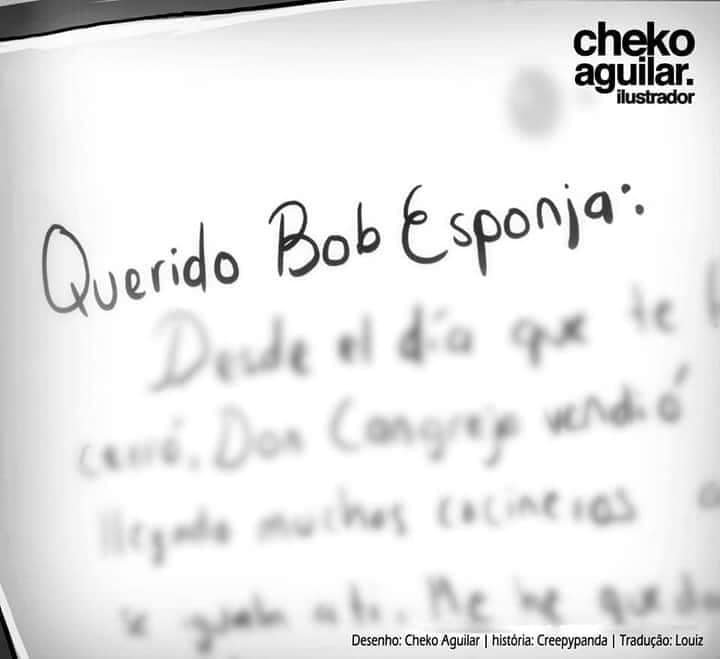 cheko
aguilar.
ilustrador
Querido Bob Esponja:
Desde el día que te
cerró. Don Cangrejo vendió
llegado muchos cocineros
a ti. Me he
Desenho: Cheko Aguilar | história: Creepypanda | Tradução: Louiz